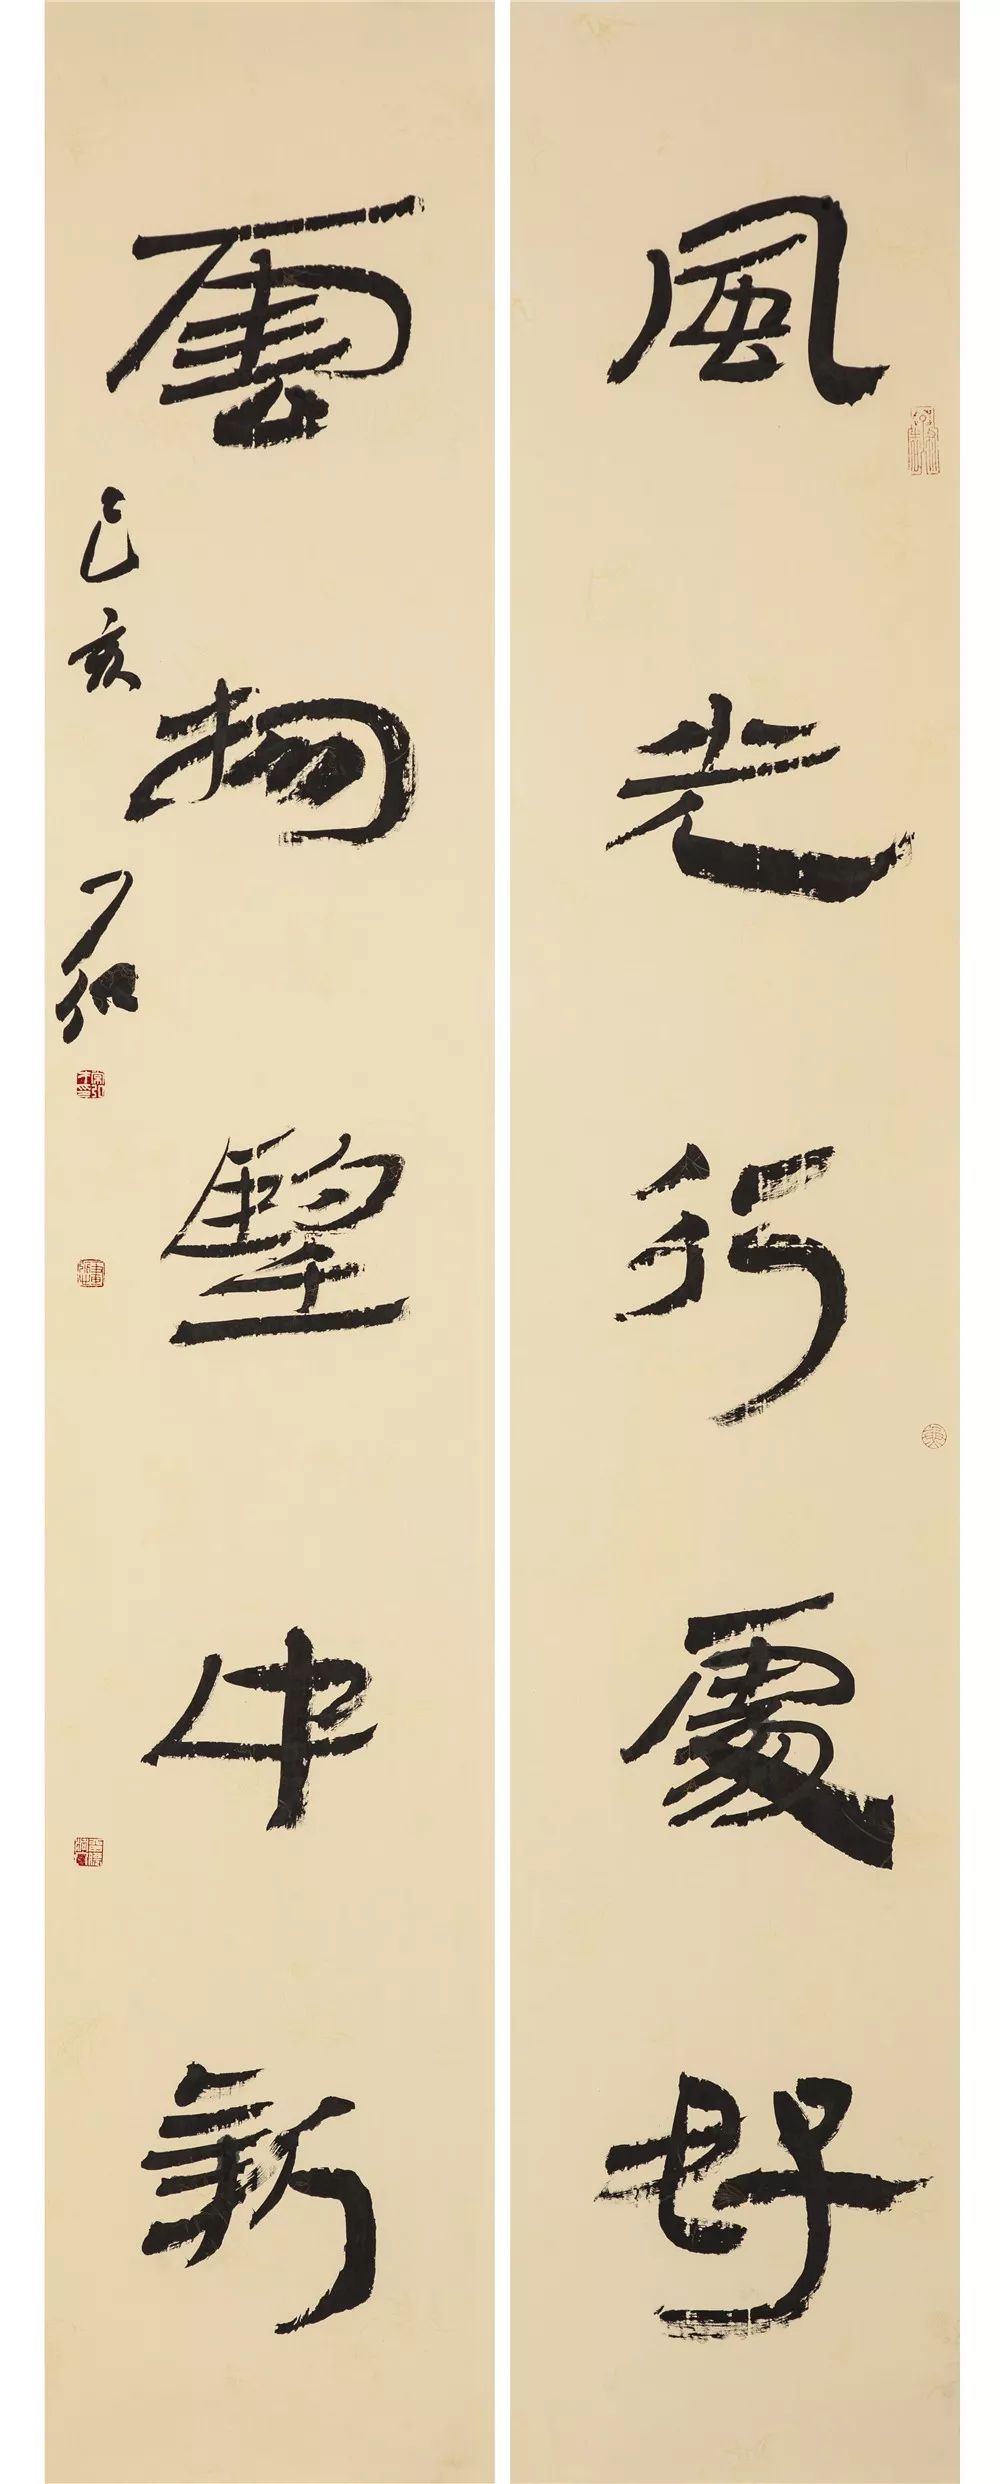 風光行處好
雲物望中新
己亥